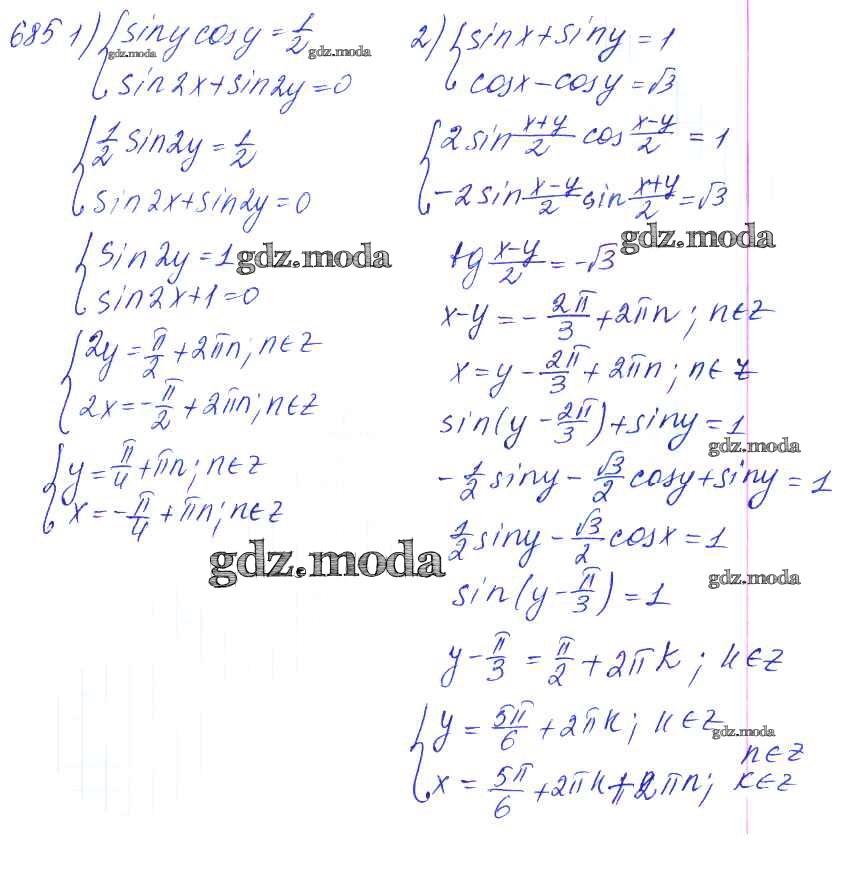 685 1) { sin y cos y = 1/2
gdz.moda
gdz.moda
sin 2x + sin 2y = 0
{ 1/2 sin 2y = 1/2
sin 2x + sin 2y = 0
{ sin 2y = 1
gdz.moda
sin 2x + 1 = 0
{ 2y = π/2 + 2πn; n∈Z
2x = -π/2 + 2πn; n∈Z
{ y = π/4 + πn; n∈Z
x = -π/4 + πn; n∈Z
gdz.moda
2) { sin x + sin y = 1
cos x - cos y = √3
{ 2 sin (x+y)/2 cos (x-y)/2 = 1
-2 sin (x-y)/2 sin (x+y)/2 = √3
gdz.moda
tg (x-y)/2 = -√3
x-y = -2π/3 + 2πn; n∈Z
x = y - 2π/3 + 2πn; n∈Z
sin(y - 2π/3) + sin y = 1
gdz.moda
-1/2 sin y - √3/2 cos y + sin y = 1
1/2 sin y - √3/2 cos x = 1
gdz.moda
sin(y - π/3) = 1
y - π/3 = π/2 + 2πk; k∈Z
{ y = 5π/6 + 2πk; k∈Z
gdz.moda
n∈Z
x = 5π/6 + 2πk + 2πn; k∈Z